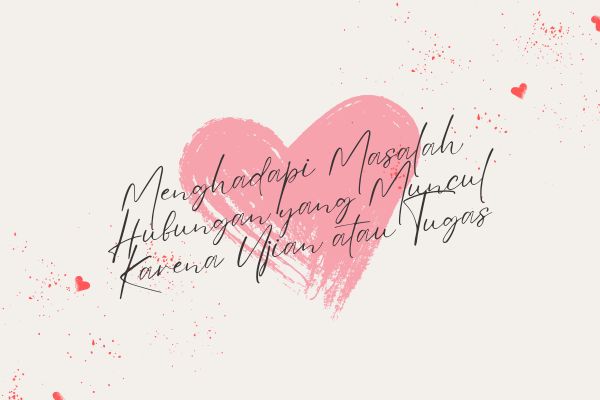 Menghadapi Masalah
Hubungan yang Muncul
Karena Ujian atau Tugas